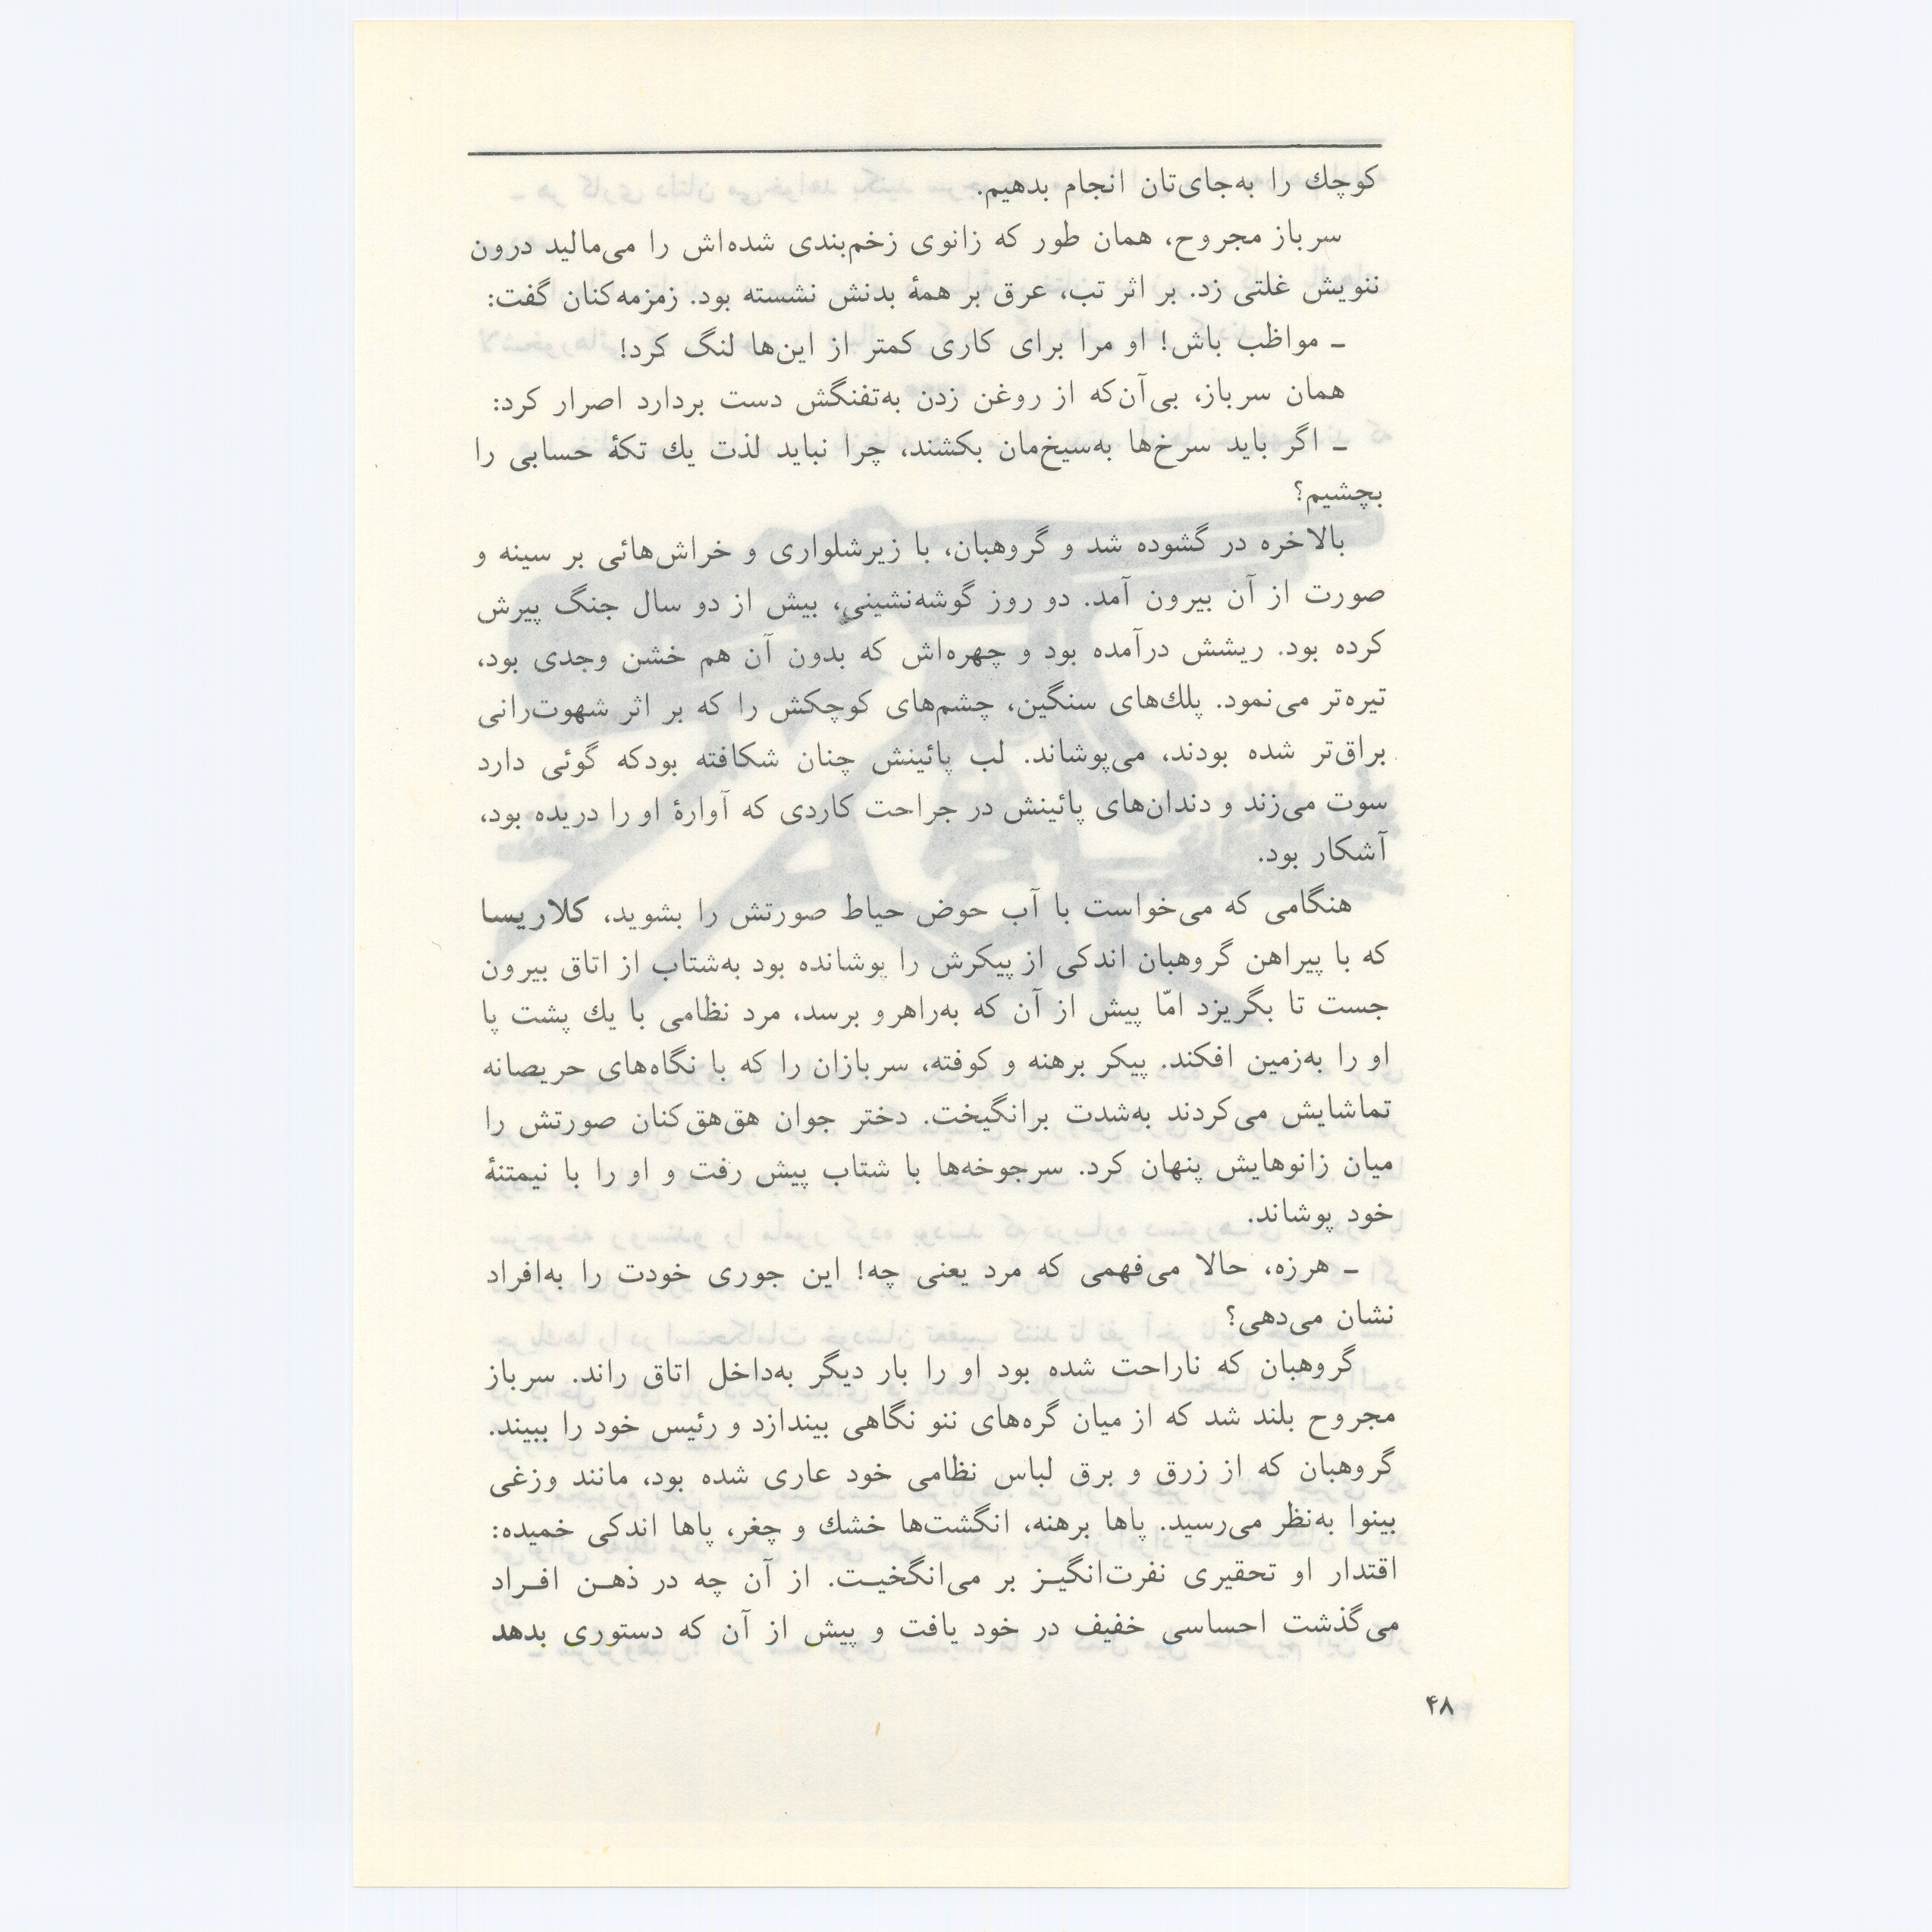 کوچك را به‌جای‌تان انجام بدهیم.
سرباز مجروح، همان طور که زانوی زخم‌بندی شده‌اش را می‌مالید درون
ننویش غلتی زد. بر اثر تب، عرق بر همهٔ بدنش نشسته بود. زمزمه‌کنان گفت:
ـ مواظب باش! او مرا برای کاری کمتر از این‌ها لنگ کرد!
همان سرباز، بی‌آن‌که از روغن زدن به‌تفنگش دست بردارد اصرار کرد:
ـ اگر باید سرخ‌ها به‌سیخ‌مان بکشند، چرا نباید لذت یك تکهٔ حسابی را
بچشیم؟
بالاخره در گشوده شد و گروهبان، با زیرشلواری و خراش‌هائی بر سینه و
صورت از آن بیرون آمد. دو روز گوشه‌نشینی، بیش از دو سال جنگ پیرش
کرده بود. ریشش درآمده بود و چهره‌اش که بدون آن هم خشن وجدی بود،
تیره‌تر می‌نمود. پلك‌های سنگین، چشم‌های کوچکش را که بر اثر شهوت‌رانی
براق‌تر شده بودند، می‌پوشاند. لب پائینش چنان شکافته بودکه گوئی دارد
سوت می‌زند و دندان‌های پائینش در جراحت کاردی که آوارهٔ او را دریده بود،
آشکار بود.
هنگامی که می‌خواست با آب حوض حیاط صورتش را بشوید، کلاریسا
که با پیراهن گروهبان اندکی از پیکرش را پوشانده بود به‌شتاب از اتاق بیرون
جست تا بگریزد امّا پیش از آن که به‌راهرو برسد، مرد نظامی با یك پشت پا
او را به‌زمین افکند. پیکر برهنه و کوفته، سربازان را که با نگاه‌های حریصانه
تماشایش می‌کردند به‌شدت برانگیخت. دختر جوان هق‌هق‌کنان صورتش را
میان زانوهایش پنهان کرد. سرجوخه‌ها با شتاب پیش رفت و او را با نیمتنهٔ
خود پوشاند.
ـ هرزه، حالا می‌فهمی که مرد یعنی چه! این جوری خودت را به‌افراد
نشان می‌دهی؟
گروهبان که ناراحت شده بود او را بار دیگر به‌داخل اتاق راند. سرباز
مجروح بلند شد که از میان گره‌های ننو نگاهی بیندازد و رئیس خود را ببیند.
گروهبان که از زرق و برق لباس نظامی خود عاری شده بود، مانند وزغی
بینوا به‌نظر می‌رسید. پاها برهنه، انگشت‌ها خشك و چغر، پاها اندکی خمیده:
اقتدار او تحقیری نفرت‌انگیـز بر می‌انگخیـت. از آن چه در ذهـن افـراد
می‌گذشت احساسی خفیف در خود یافت و پیش از آن که دستوری بدهد
۴۸